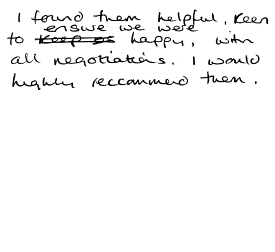 I found them helpful, keen
ensure we were
to keep us happy, with
all negotiations. I would
highly reccommend them.